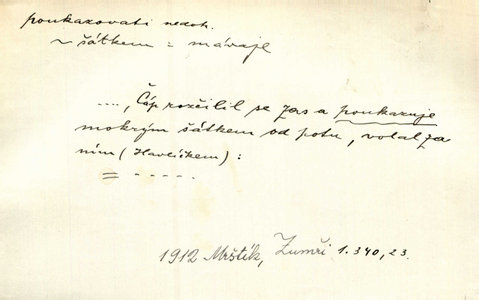 poukazovati nedok.
~ šátkem = mávaje
...., Čáp rozčilil se zas a poukazuje
mokrým šátkem od potu, volal za
ním (Havlíčkem) :
= - - - - -
1912 Mrštík, Zumři 1. 340, 23.